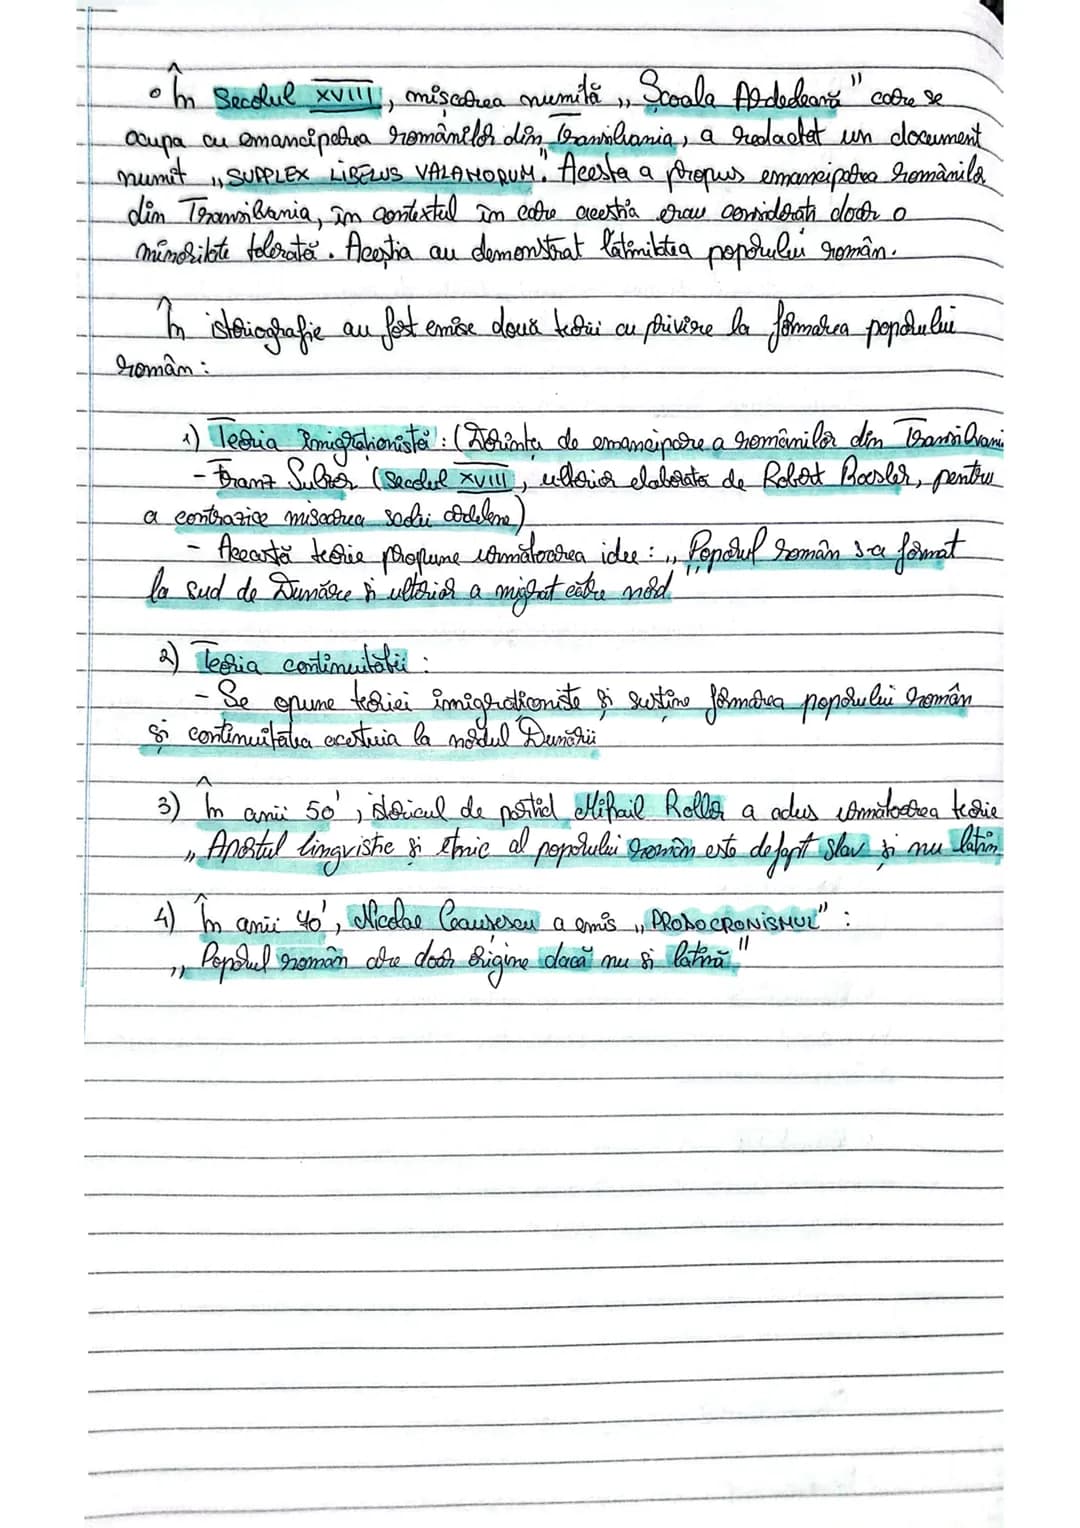 • În Secolul XVIII, mișcarea numită „Școala Ardeleană" care se
ocupa cu emanciparea românilor din Transilvania, a redactat un document
numit „SUPPLEX LIBELUS VALAHORUM". Acesta a propus emanciparea românilor
din Transilvania, în contextul în care aceștia erau considerați doar o
minoritate tolerată. Aceștia au demonstrat latinitatea poporului român.
În istoriografie au fost emise două teorii cu privire la formarea poporului
român:
1) Teoria Imigraționistă: (Dorința de emancipare a românilor din Transilvani
- Franz Sulzer (Secolul XVIII, ulterior elaborata de Robert Roesler, pentru
a contrazice miscarea scolii ardelene)
- Această teorie propune următoarea idee: „Poporul român s-a format
la sud de Dunăre și ulterior a migrat către nord"
2) Teoria continuitatii:
- Se opune teoriei imigraționiste și sustine formarea poporului român
și continuitatea acestuia la nordul Dunării
3) În anii 50', istoricul de partid Mihail Roller a adus următoarea teorie
„Aportul lingvistic și etnic al poporului român este defapt slav și nu latin
4) În anii 40', Nicolae Ceausescu a emis „PRODOCRONISMUL":
„Poporul român are doar origine dacă nu și latină"